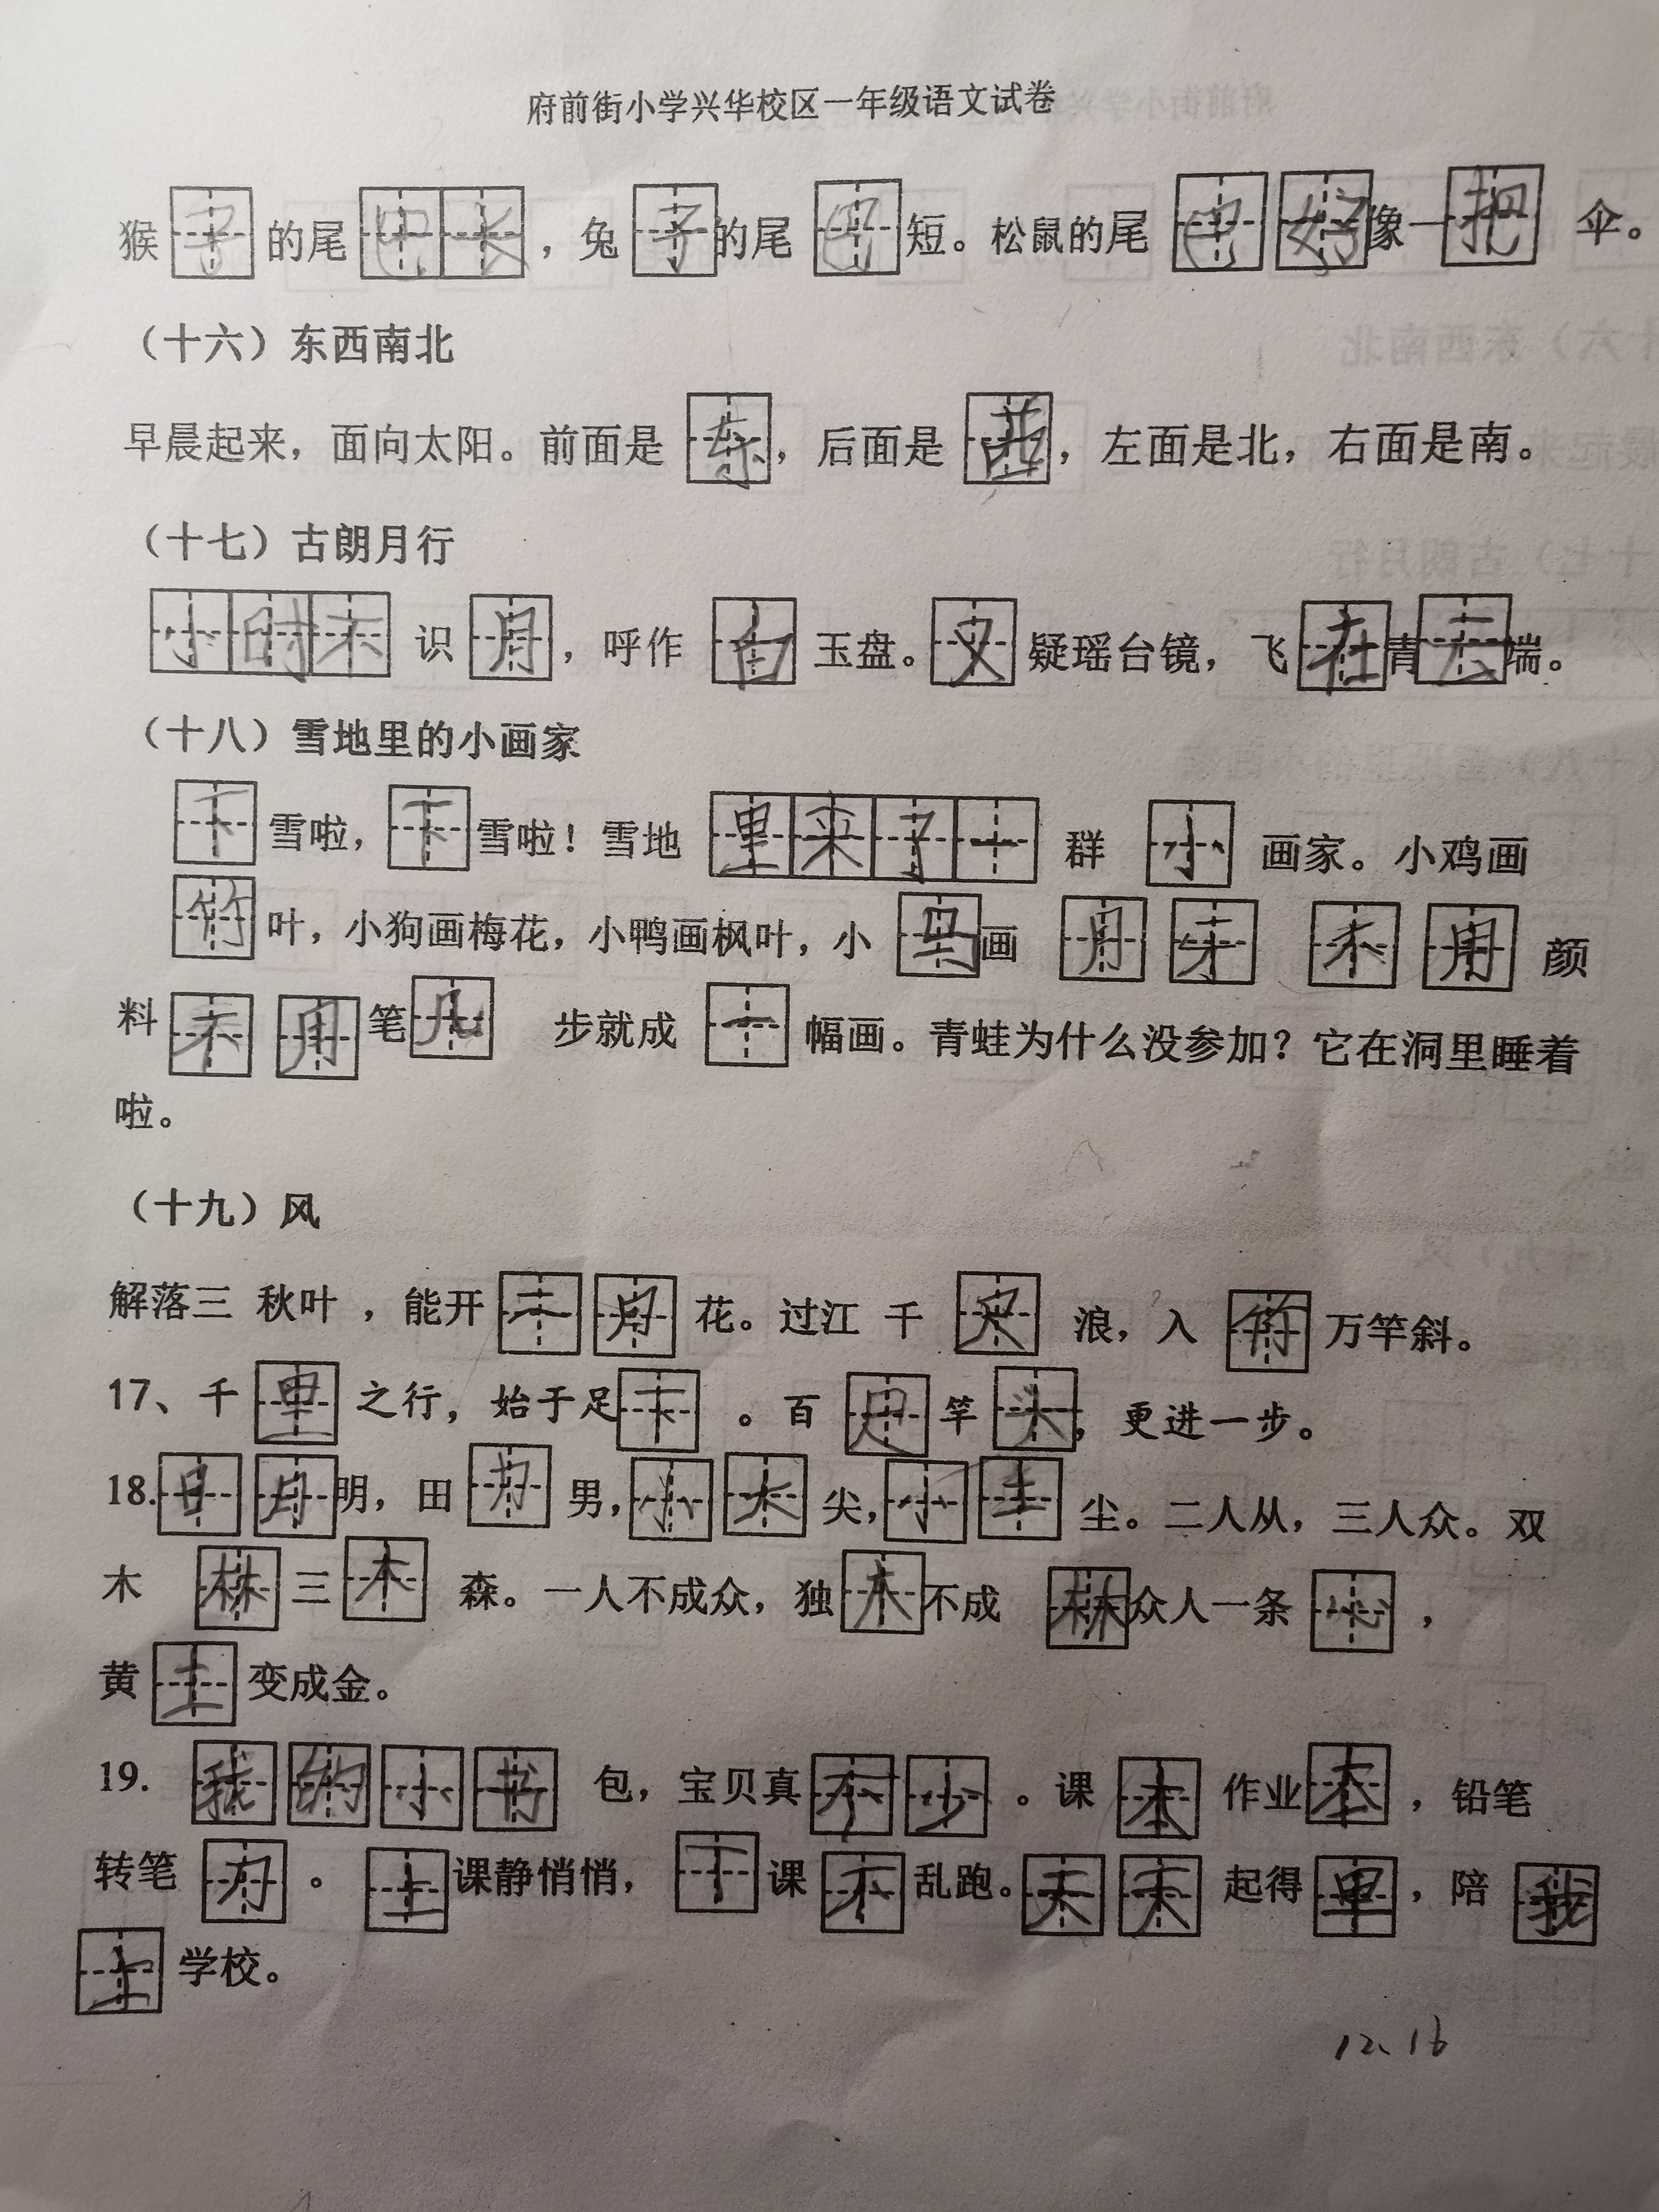 府前街小学兴华校区一年级语文试卷
猴子的尾巴长，兔子的尾巴短。松鼠的尾巴好像一把伞。
（十六）东西南北
早晨起来，面向太阳。前面是东，后面是西，左面是北，右面是南。
（十七）古朗月行
小时不识月，呼作白玉盘。又疑瑶台镜，飞在青云端。
（十八）雪地里的小画家
下雪啦，下雪啦！雪地里来了一群小画家。小鸡画
竹叶，小狗画梅花，小鸭画枫叶，小马画月牙不用颜
料不用笔几步就成一幅画。青蛙为什么没参加？它在洞里睡着
啦。
（十九）风
解落三秋叶，能开二月花。过江千尺浪，入竹万竿斜。
17、千里之行，始于足下。百尺竿头，更进一步。
18.日月明，田力男，小大尖，小土尘。二人从，三人众。双
木林三木森。一人不成众，独木不成林众人一条心，
黄土变成金。
19.我的小书包，宝贝真不少。课本作业本，铅笔
转笔刀。上课静悄悄，下课不乱跑。天天起得早，陪我
上学校。
12.16